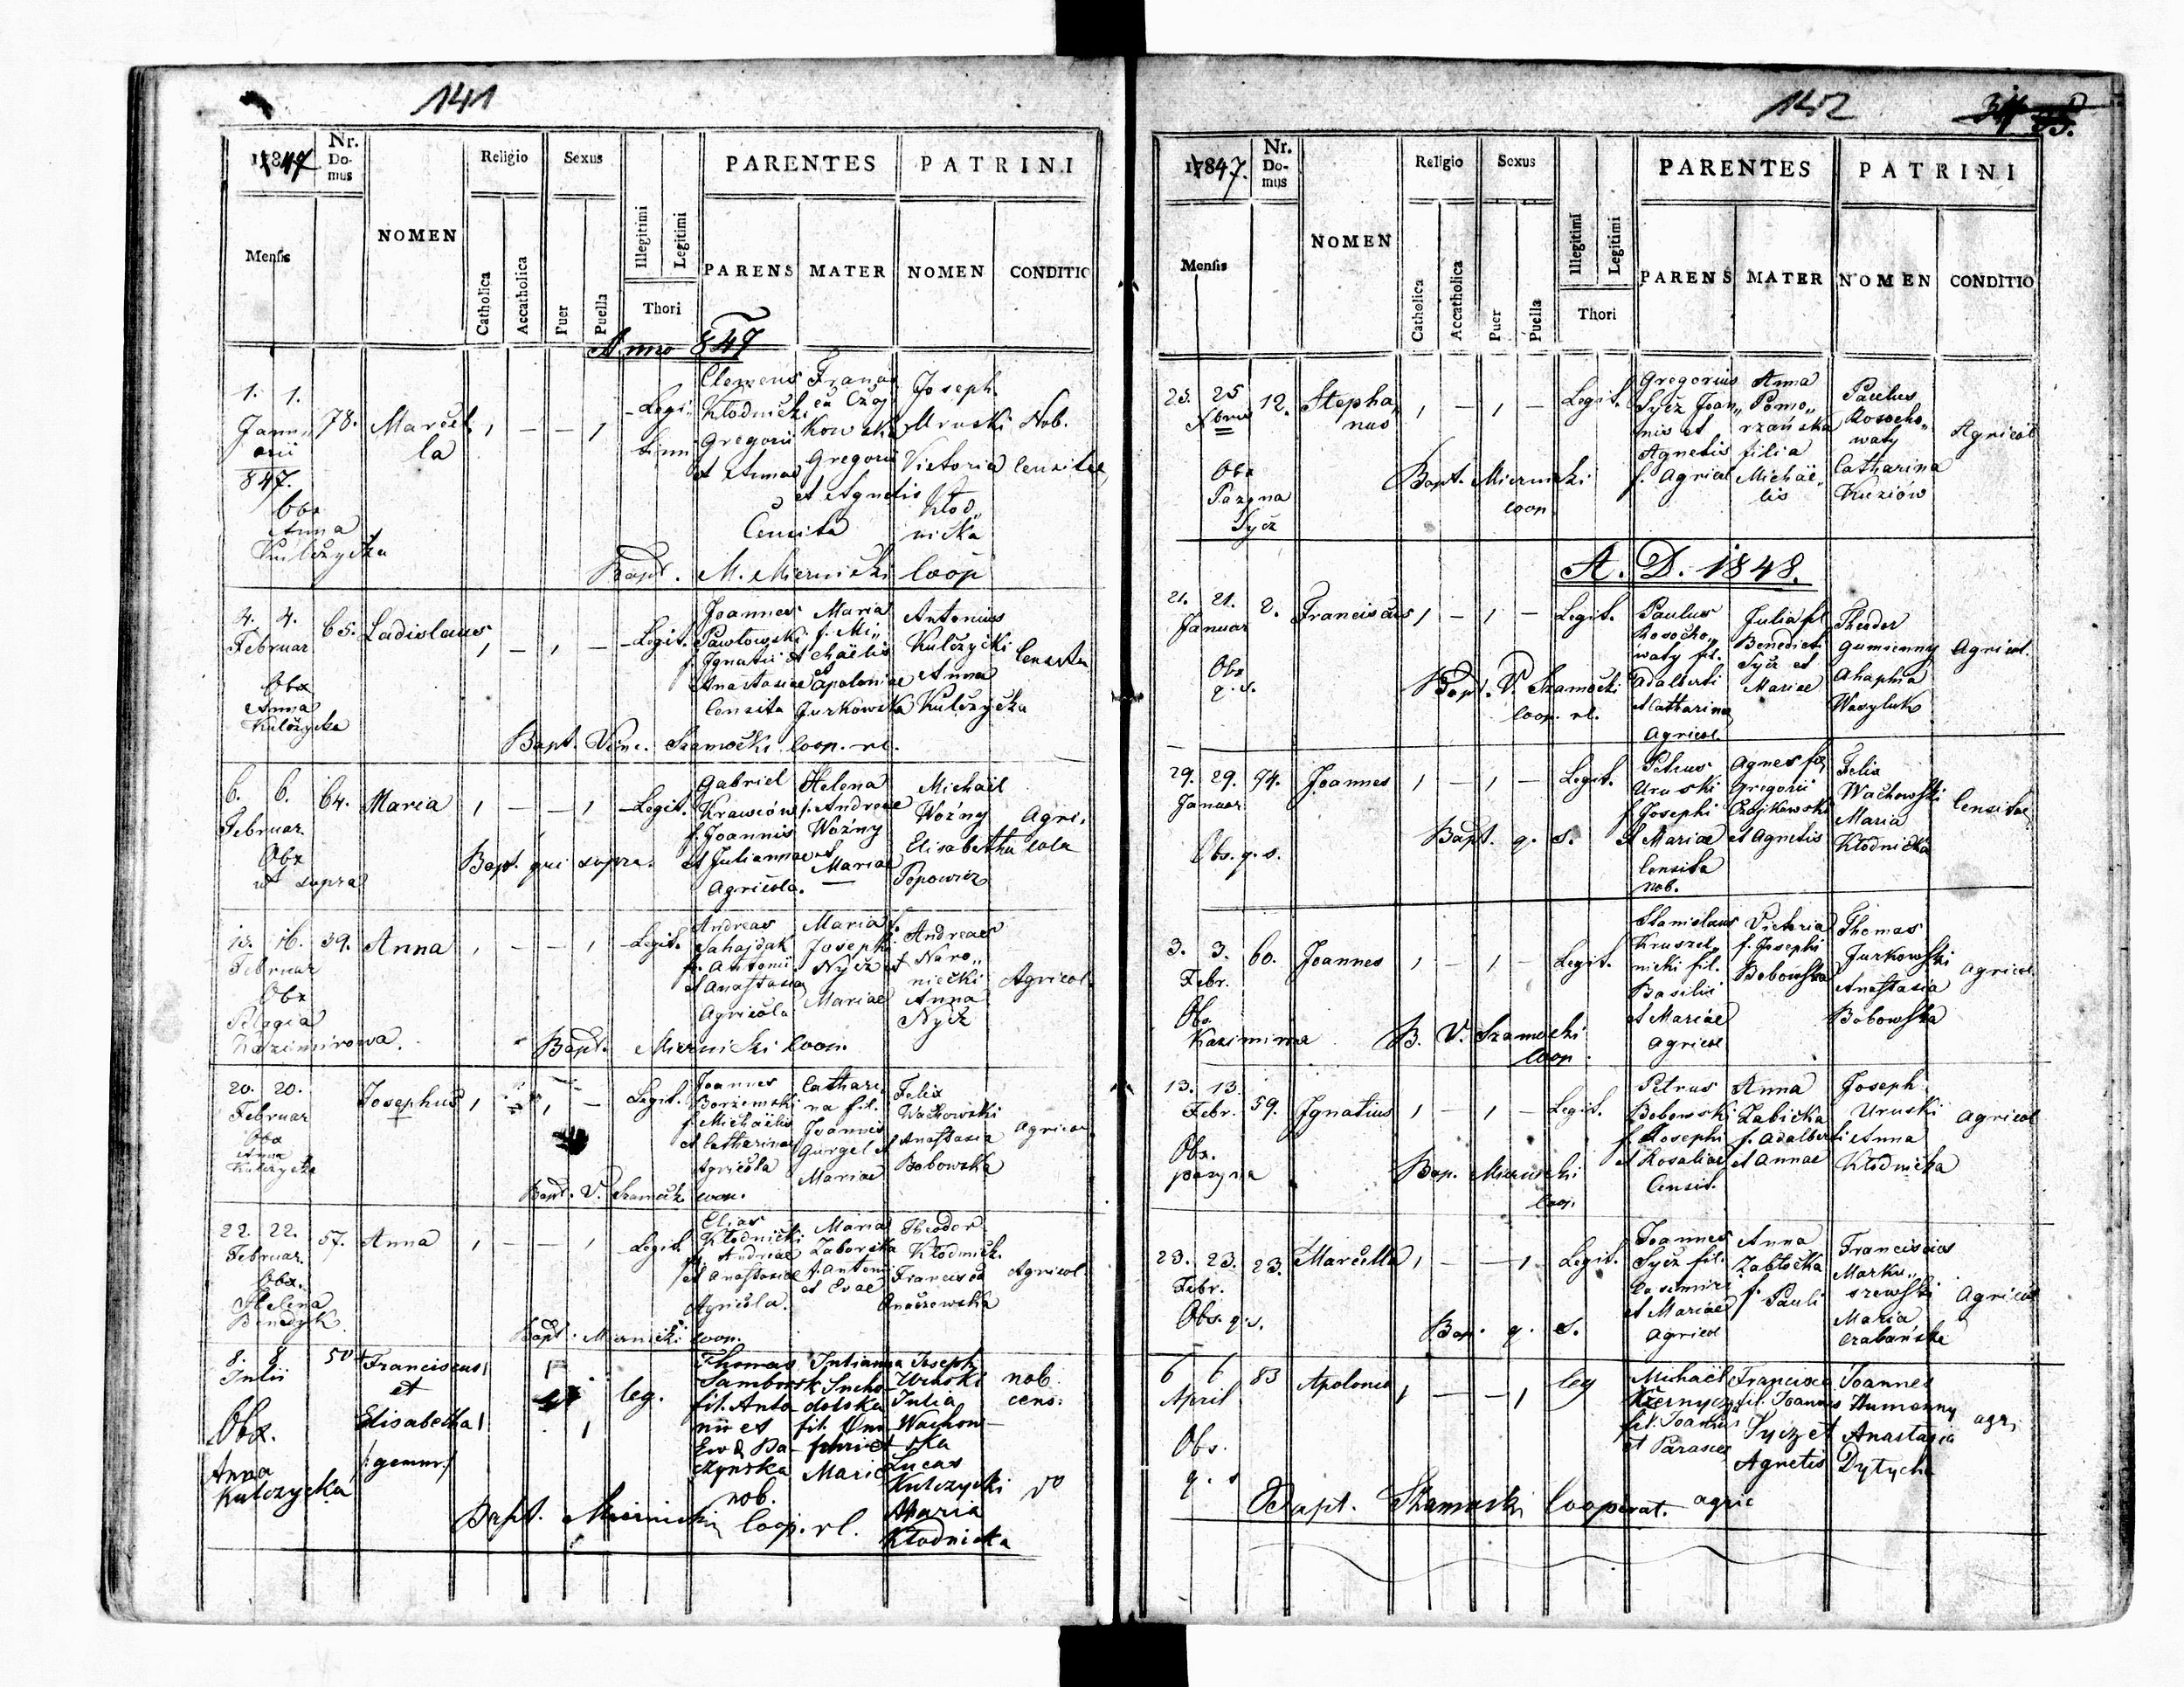 141
1847
Nr. Domus
NOMEN
Religio
Sexus
PARENTES
PATRINI
Mensis
Catholica
Accatholica
Puer
Puella
Illegitimi
Legitimi
Thori
PARENS
MATER
NOMEN
CONDITIO
Anno 847
1. 1. Januarii 847.
78.
Marcella
1 - - 1
Legitimi
Clemens Kłodnicki Gregorii et Annae
Francisca Czajkowska Gregorii et Agnetis
Censita
Joseph Uruski Nob.
Victoria Kłodnicka Censitae
Obx Anna Kulczycka
Bapt. M. Miernicki Coop
4. 4. Februar
65.
Ladislaus
1 - 1 -
Legit.
Joannes Pawłowski f. Ignatii et Anastasiae Censita
Maria f. Michaëlis et Apoloniae Jurkowska
Antonius Kulczycki
Anna Kulczycka
Censitae
Obx Anna Kulczycka
Bapt. Vinc. Szamocki Coop. rl.
6. 6. Februar.
64.
Maria
1 - - 1
Legit.
Gabriel Krawców f. Joannis et Juliannae Agricola.
Helena f. Andreae Woźny et Mariae
Michaël Woźny
Elisabetha Popowicz
Agricola
Obx ut supra
Bapt. qui supra.
15. 16. Februar
39.
Anna
1 - - 1
Legit.
Andreas Sahajdak f. Antonii et Anastasia Agricola
Maria f. Josephi Nycz et Mariae
Andreas Naroniecki
Anna Nycz
Agricol.
Obx Pelagia Kazimirowa.
Bapt. Miernicki Coop.
20. 20. Februar
Josephus
1 - 1 -
Legit.
Joannes Borzemski f. Michaëlis et Catharinae Agricola
Catharina fil. Joannis Gurgel et Mariae
Felix Wachowski
Anastasia Bobowska
Agricol
Obx Anna Kulczycka
Bapt. V. Szamocki Coop.
22. 22. Februar.
57.
Anna
1 - - 1
Legit.
Elias Kłodnicki f. Andreae et Anastasiae Agricola.
Maria Zaborska f. Antoni et Evae
Theodor Kłodnick.
Francisca
Agricol.
Obx. Helena Benedyk.
Bapt. Miernicki Coop.
8. 8. Julii
50
Franciscus et Elisabetha
/:gemini:/
leg.
Thomas Samborsk fil. Antonii et Ewa nob.
Julianna Suchodolska fil. Onuphrii et Maria
Joseph Uruski
Julia Wachowska
Lucas Kulczycki
Maria Kłodnicka
nob. cens.
do
Obx. Anna Kulczycka
Bapt. Miernicki Coop. rl.
152
1847.
Nr. Domus
NOMEN
Religio
Sexus
PARENTES
PATRINI
Mensis
Catholica
Accatholica
Puer
Puella
Illegitimi
Legitimi
Thori
PARENS
MATER
NOMEN
CONDITIO
25. 25 Xbris
12.
Stephanus
1 - 1 -
Legit.
Gregorius Sycz Joannis et Agnetis f. Agricol
Anna Pomorzańska filia Michaëlis
Paulus Rosochowaty
Catharina Kuziów
Agricol
Obx Pazyna Sycz
Bapt. Miernicki Coop
A. D. 1848.
21. 21. Januar
2.
Franciscus
1 - 1 -
Legit.
Paulus Rosochowaty fil. Adalberti et Catharinae Agricol.
Julia fil Benedicti Sycz et Mariae
Theodor Gumienny
Ahaphia Wasyluk
Agricol.
Obx q. s.
Bapt. V. Szamocki Coop. rl.
29. 29. Januar.
94.
Joannes
1 - 1 -
Legit.
Petrus Uruski f. Josephi et Mariae Censita nob.
Agnes fil Gregorii Czajkowski et Agnetis
Felix Wachowski
Maria Kłodnicka
Censitae
Obs. q. s.
Bapt. q. s.
3. 3. Febr.
60.
Joannes
1 - 1 -
Legit.
Stanislaus Kruszelnicki fil. Basilii et Mariae Agricol
Victoria f. Josephi Bobowska
Thomas Jurkowski
Anastasia Bobowska
Agricol.
Obs. Kazimirowa
B. V. Szamocki Coop.
13. 13. Febr.
59.
Ignatius
1 - 1 -
Legit.
Petrus Bobowski f. Josephi et Rosaliae Censit.
Anna Zabicka f. Adalberti et Annae
Joseph Uruski
Anna Kłodnicka
Agricol
Obx. pazyna
Bap. Miernicki Coop.
23. 23. Febr.
23.
Marcella
1 - - 1
Legit.
Joannes Sycz fil. Casimiri et Mariae Agricol
Anna Zabłocka f. Pauli
Franciscus Markuszewski
Maria Czabańska
Agricol
Obs. q. s.
Bap. q. s.
6 6 April
83
Apolonia
1 - - 1
leg
Michaël fil. Joannis et Parascev agric
Francisca fil. Joannis Sycz et Agnetis
Joannes Humenny
Anastasia Dytycha
agr.
Obs. q. s
Bapt. Szamocki Cooperat.